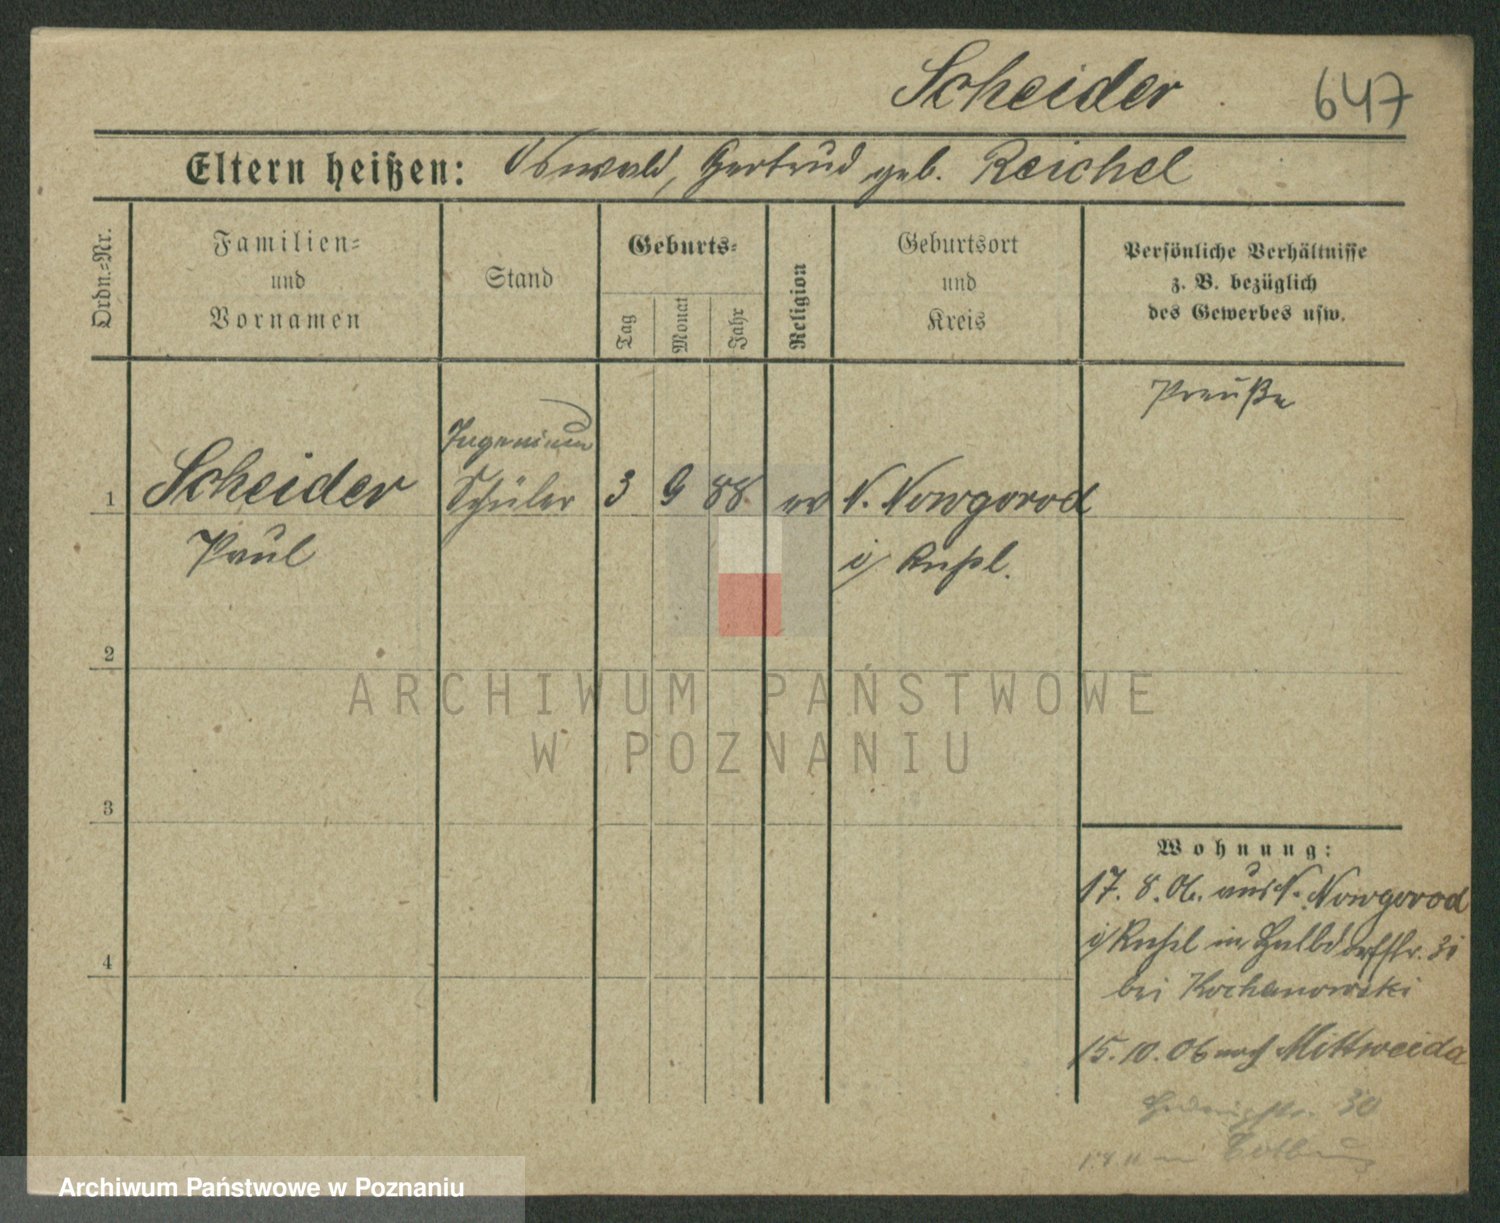 Scheider
647
Eltern heißen: Oswald, Gertrud geb. Reichel
Ordn.=Nr.
Familien=
und
Vornamen
Stand
Geburts=
Tag
Monat
Jahr
Religion
Geburtsort
und
Kreis
Persönliche Verhältnisse
z. B. bezüglich
des Gewerbes usw.
Preuße
1
Scheider
Paul
Ingenieur
Schüler
3
9
88
ev
N. Nowgorod
i/ Rußl.
2
3
4
Wohnung:
17. 8. 06. aus N. Nowgorod
i/ Rußl in Halbdorfstr. 31
bei Kochanowski
15. 10. 06 nach Mittweida
30
ARCHIWUM PAŃSTWOWE
W POZNANIU
Archiwum Państwowe w Poznaniu